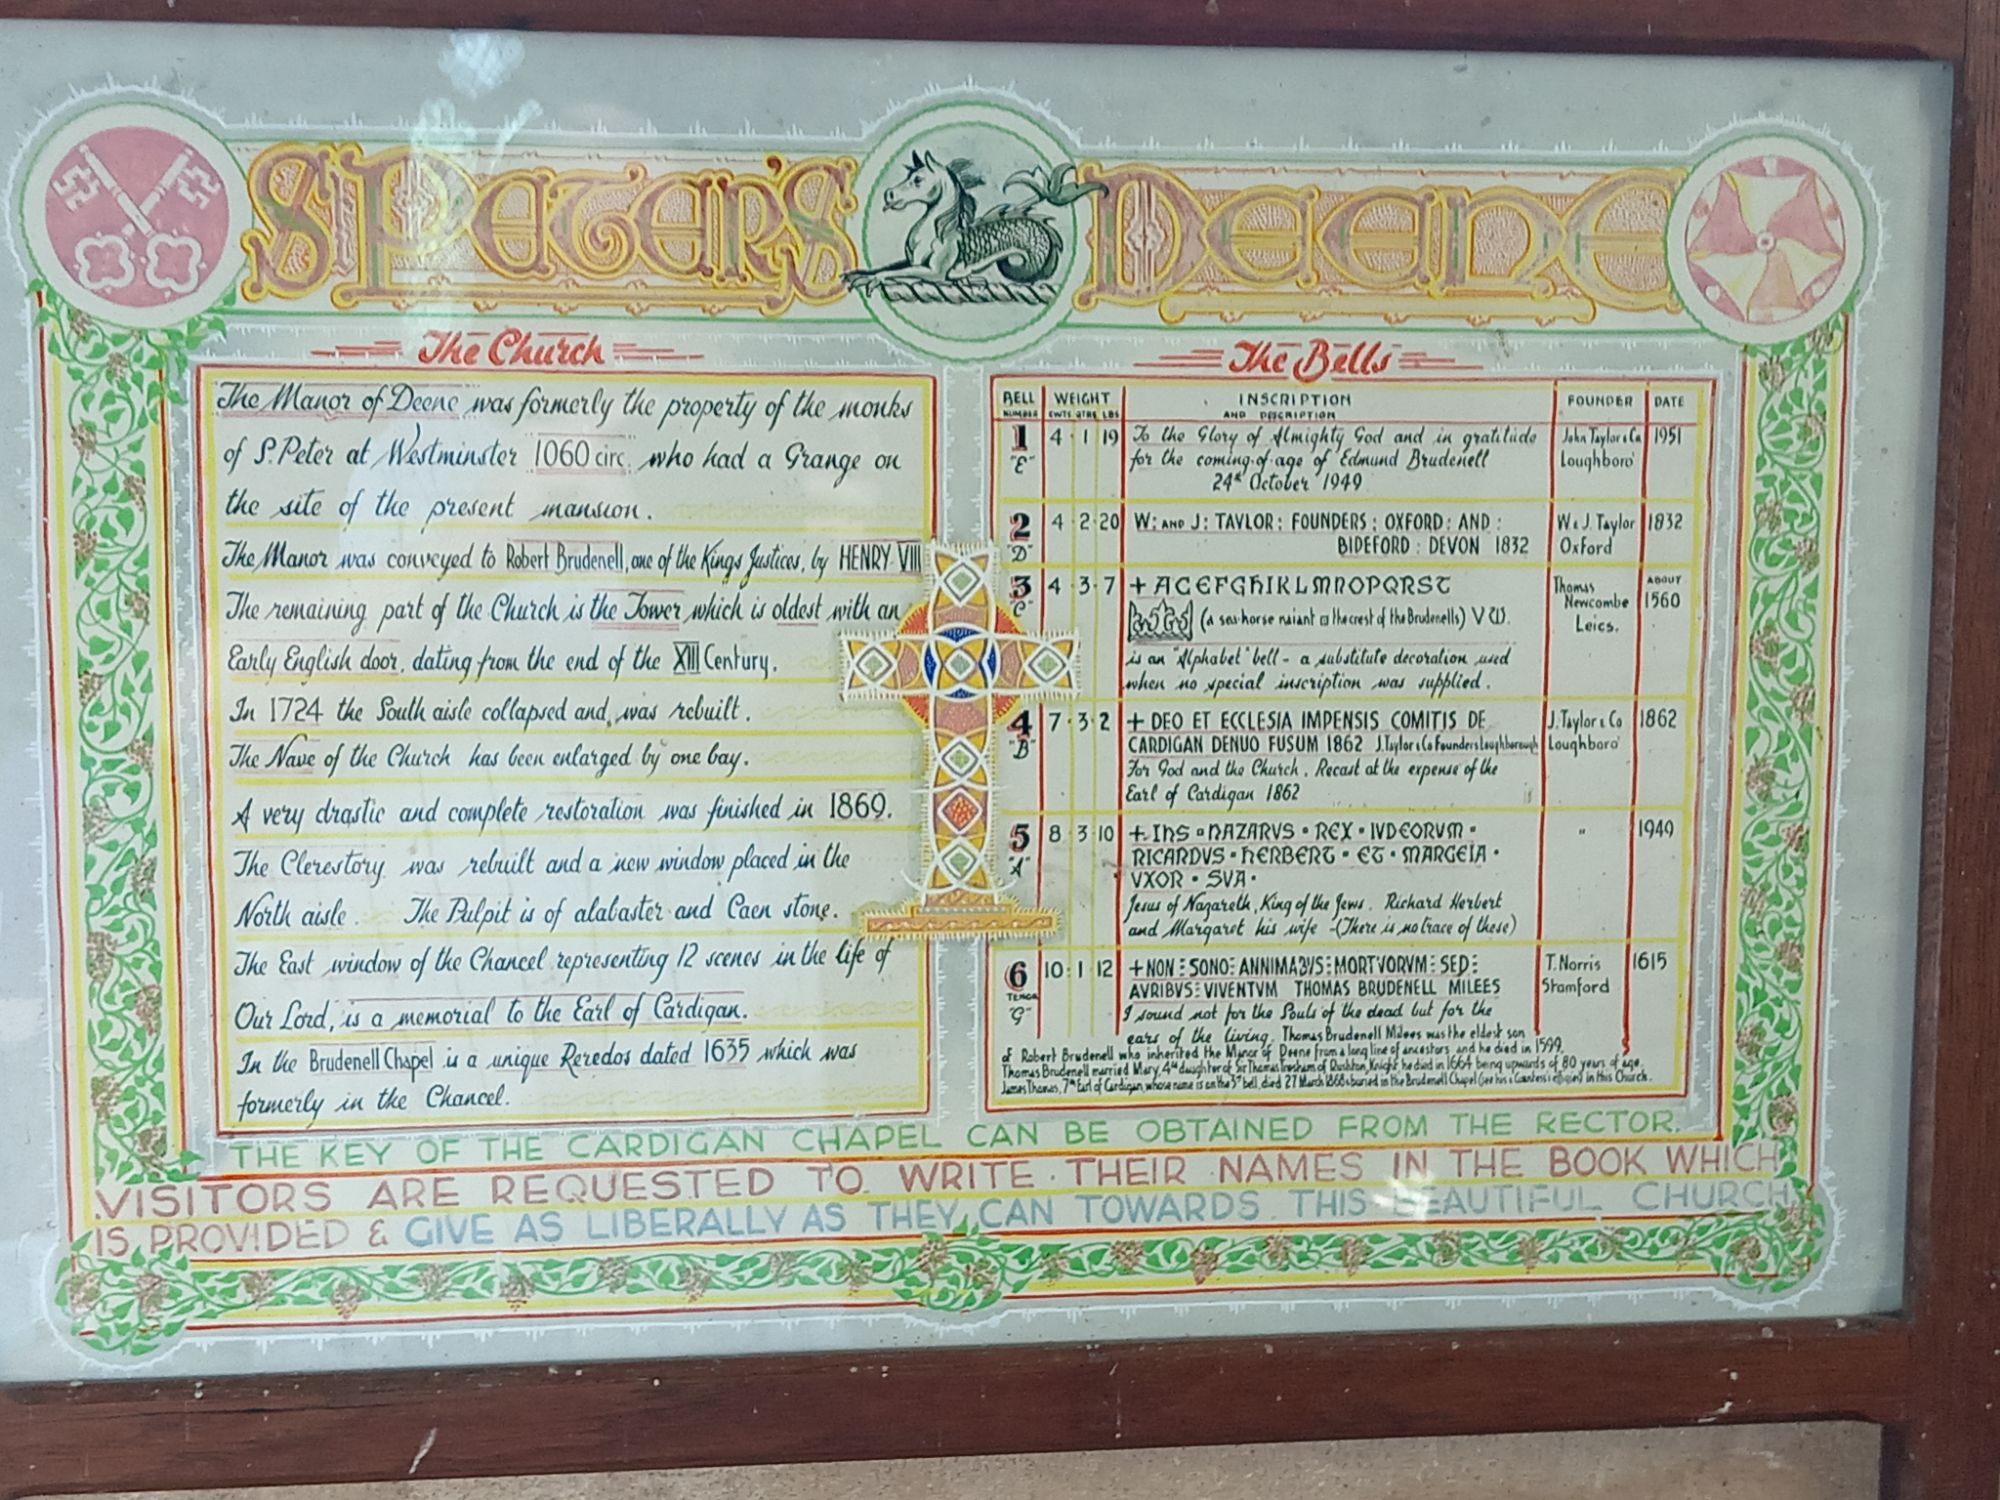 S. PETER'S DEENE
The Church
The Manor of Deene was formerly the property of the monks
of S. Peter at Westminster 1060 circ. who had a Grange on
the site of the present mansion.
The Manor was conveyed to Robert Brudenell, one of the Kings Justices, by HENRY VIII
The remaining part of the Church is the Tower which is oldest with an
Early English door, dating from the end of the XIII Century.
In 1724 the South aisle collapsed and was rebuilt.
The Nave of the Church has been enlarged by one bay.
A very drastic and complete restoration was finished in 1869.
The Clerestory was rebuilt and a new window placed in the
North aisle. The Pulpit is of alabaster and Caen stone.
The East window of the Chancel representing 12 scenes in the life of
Our Lord, is a memorial to the Earl of Cardigan.
In the Brudenell Chapel is a unique Reredos dated 1635 which was
formerly in the Chancel.
The Bells
BELL WEIGHT INSCRIPTION FOUNDER DATE
NUMBER CWTS QTRS LBS AND DESCRIPTION
1 4 · 1 19 To the Glory of Almighty God and in gratitude John Taylor & Co 1951
"E" for the coming-of-age of Edmund Brudenell Loughboro'
24th October 1949
2 4 · 2 · 20 W: AND J: TAYLOR : FOUNDERS : OXFORD : AND : W & J. Taylor 1832
"D" BIDEFORD : DEVON 1832 Oxford
3 4 · 3 · 7 + ACEFGHIKLMNOPQRST Thomas ABOUT
"C" (a sea-horse naiant is the crest of the Brudenells) V W. Newcombe 1560
Leics.
is an "Alphabet" bell - a substitute decoration used
when no special inscription was supplied.
4 7 · 3 · 2 + DEO ET ECCLESIA IMPENSIS COMITIS DE J. Taylor & Co 1862
"B" CARDIGAN DENUO FUSUM 1862 J. Taylor & Co Founders Loughborough Loughboro'
For God and the Church. Recast at the expense of the
Earl of Cardigan 1862
5 8 · 3 · 10 + IHS · NAZARVS · REX · IVDEORVM · " 1949
"A" RICARDVS · HERBERT · ET · MARGEIA ·
VXOR · SVA ·
Jesus of Nazareth, King of the Jews. Richard Herbert
and Margaret his wife - (There is no trace of these)
6 10 : 1 · 12 + NON : SONO : ANNIMABVS : MORTVORVM : SED : T. Norris 1615
TENOR AVRIBVS : VIVENTVM THOMAS BRUDENELL MILEES Stamford
"G" I sound not for the Souls of the dead but for the
ears of the living. Thomas Brudenell Milees was the eldest son
of Robert Brudenell who inherited the Manor of Deene from a long line of ancestors and he died in 1599.
Thomas Brudenell married Mary, 4th daughter of Sir Thomas Tresham of Rushton, Knight he died in 1664 being upwards of 80 years of age.
James Thomas, 7th Earl of Cardigan, whose name is on the 3rd bell, died 27 March 1868 & buried in the Brudenell Chapel (see his & Countess's effigies) in this Church.
THE KEY OF THE CARDIGAN CHAPEL CAN BE OBTAINED FROM THE RECTOR.
VISITORS ARE REQUESTED TO WRITE THEIR NAMES IN THE BOOK WHICH
IS PROVIDED & GIVE AS LIBERALLY AS THEY CAN TOWARDS THIS BEAUTIFUL CHURCH